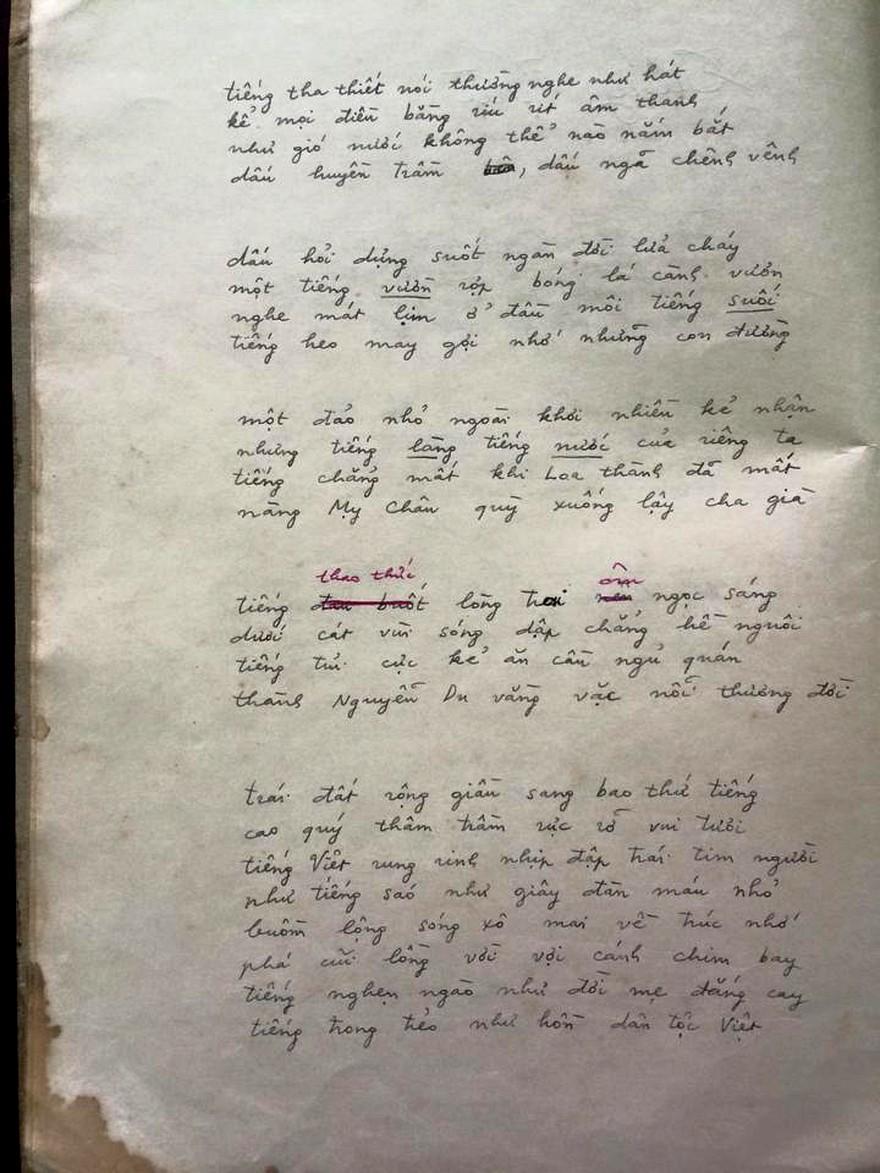 tiếng tha thiết nói thường nghe như hát
kể mọi điều bằng ríu rít âm thanh
như gió nước không thể nào nắm bắt
dấu huyền trầm, dấu ngã chênh vênh
dấu hỏi dựng suốt ngàn đời lửa cháy
một tiếng vườn rợp bóng lá cành vươn
nghe mát lịm ở đầu môi tiếng suối
tiếng heo may gợi nhớ những con đường
một đảo nhỏ ngoài khơi nhiều kẻ nhận
nhưng tiếng làng tiếng nước của riêng ta
tiếng chẳng mất khi Loa thành đã mất
nàng Mỵ Châu quỳ xuống lậy cha già
thao thức ôm
tiếng đau buốt lòng trai ngọc sáng
dưới cát vùi sóng dập chẳng hề nguôi
tiếng tủi cực kẻ ăn cầu ngủ quán
thành Nguyễn Du vằng vặc nỗi thương đời
trái đất rộng giầu sang bao thứ tiếng
cao quý thâm trầm rực rỡ vui tươi
tiếng Việt rung rinh nhịp đập trái tim người
như tiếng sáo như giây đàn máu nhỏ
buồm lộng sóng xô mai về trúc nhớ
phá cũi lồng vời vợi cánh chim bay
tiếng nghẹn ngào như đời mẹ đắng cay
tiếng trong trẻo như hồn dân tộc Việt